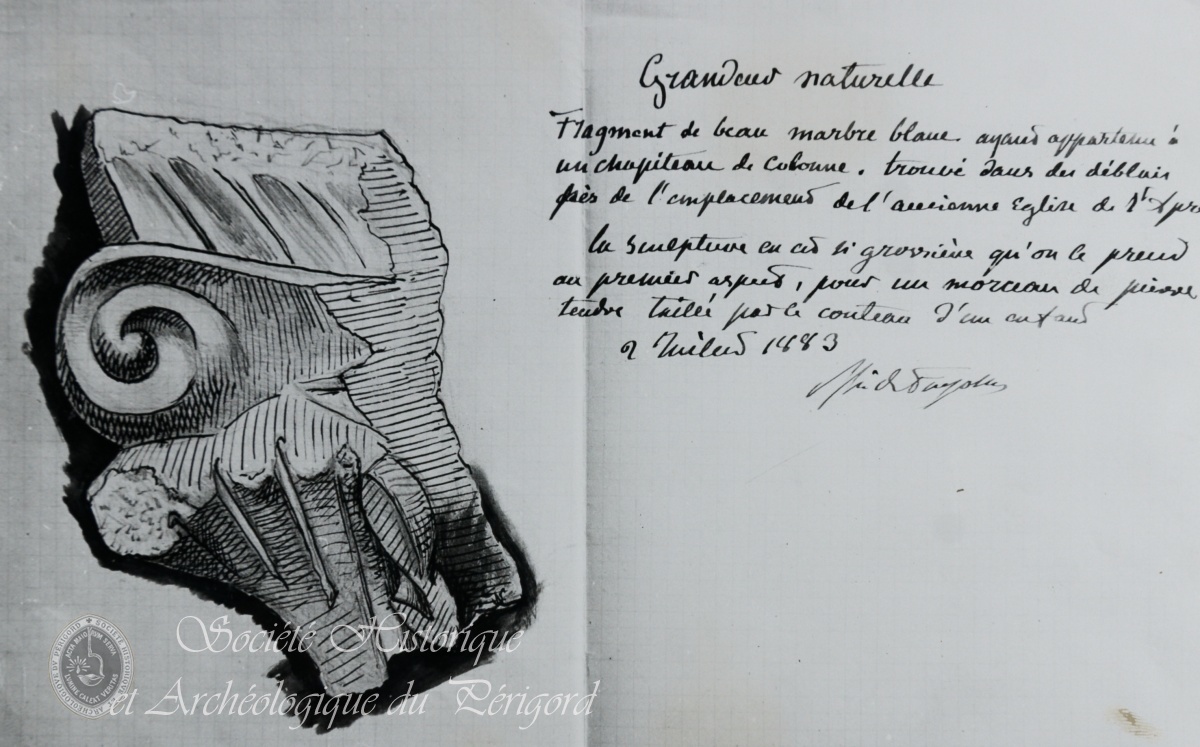 Grandeur naturelle
Fragment de beau marbre blanc ayant appartenu à
un chapiteau de colonne. trouvé dans des déblais
près de l'emplacement de l'ancienne Eglise de St
la sculpture en est si grossière qu'on le prend
au premier aspect, pour un morceau de pierre
tendre taillé par le couteau d'un enfant
2 Juillet 1883
Société Historique
et Archéologique du Périgord